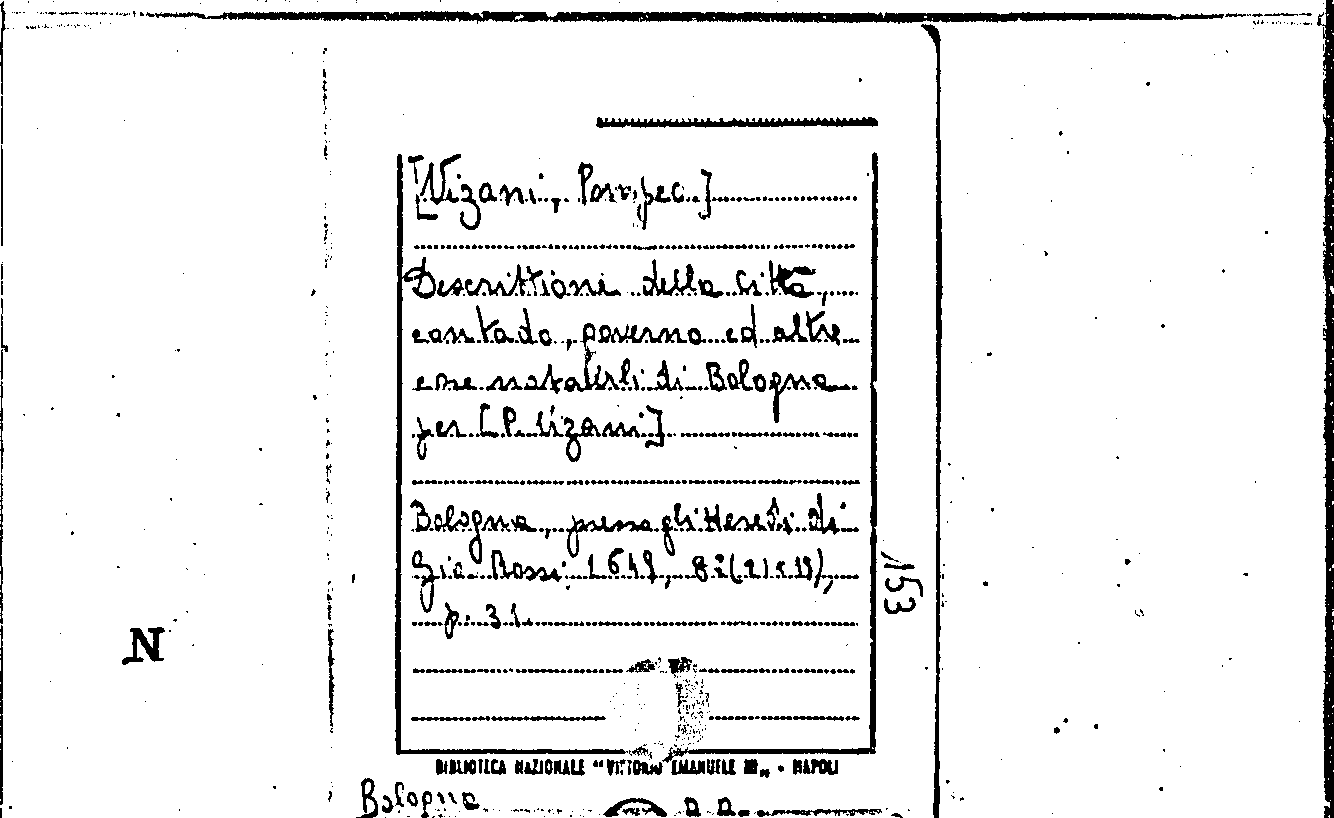 [Vizani, Pompeo.]
Descrittione della Città,
contado, governo ed altre
cose notabili di Bologna
per [P. Vizani]
Bologna, presso gli Heredi di
Gio. Rossi,
p. 31.
153
N
BIBLIOTECA NAZIONALE "VITTORIO EMANUELE III" - NAPOLI
Bologna